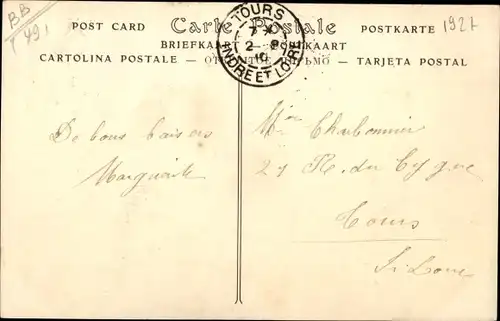 BB
491
POST CARD Carte Postale POSTKARTE
1921
BRIEFKAART POSTKAART
CARTOLINA POSTALE TARJETA POSTAL
TOURS
2 - 8
10
INDRE ET LOIRE
De bons baisers
Marguerite
Charbonnier
27 R. du Cygne
Tours